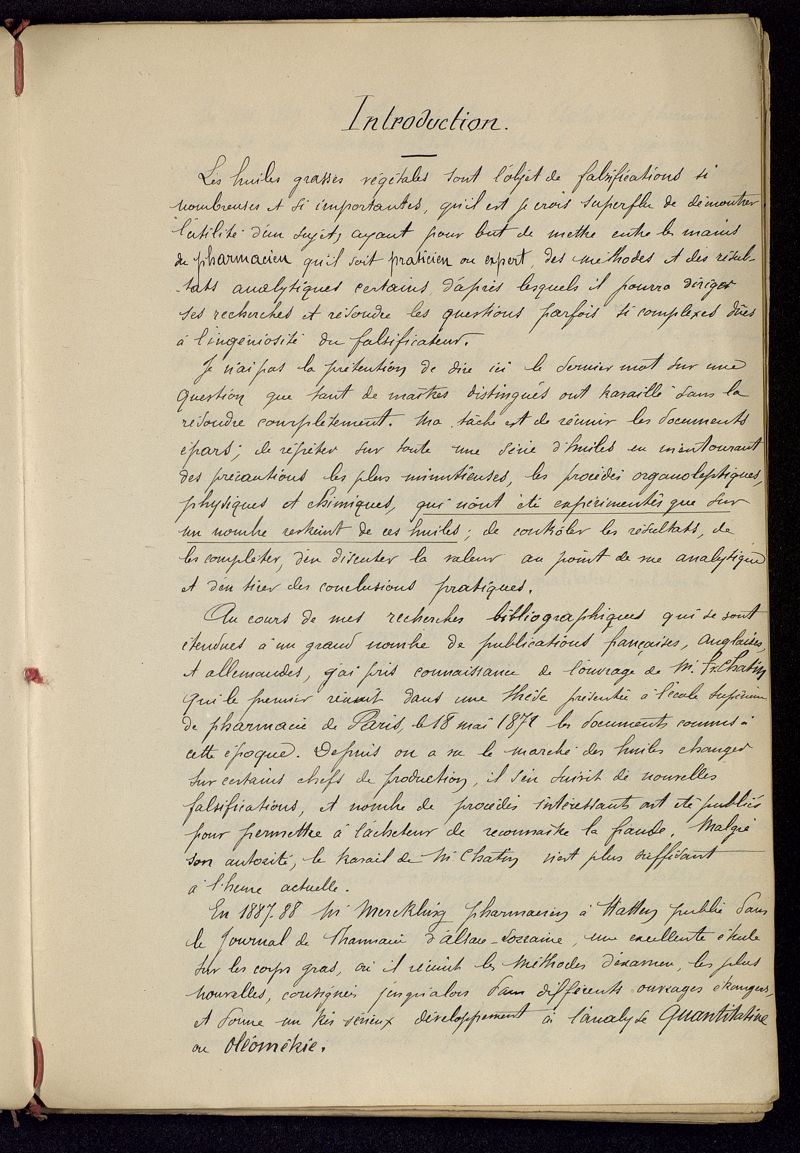 Introduction.
Les huiles grasses végétales sont l'objet de falsifications si
nombreuses et si importantes, qu'il est je crois superflu de démontrer
l'utilité d'un sujet, ayant pour but de mettre entre les mains
du pharmacien qu'il soit praticien ou expert des méthodes et des résul-
tats analytiques certains, d'après lesquels il pourra diriger
ses recherches et résoudre les questions parfois si complexes dûes
à l'ingéniosité du falsificateur.
Je n'ai pas la prétention de dire ici le dernier mot sur une
question que tant de maîtres distingués ont travaillé sans la
résoudre complètement. Ma tâche est de réunir les documents
épars; de répéter sur toute une série d'huiles en m'entourant
des précautions les plus minutieuses, les procédés organoleptiques,
physiques et chimiques, qui n'ont été expérimentés que sur
un nombre restreint de ces huiles; de contrôler les résultats, de
les compléter, d'en discuter la valeur au point de vue analytique
et d'en tirer des conclusions pratiques.
Au cours de mes recherches bibliographiques qui se sont
étendues à un grand nombre de publications françaises, anglaises,
et allemandes, j'ai pris connaissance de l'ouvrage de M. Chatin
qui le premier réunit dans une thèse présentée à l'école supérieure
de pharmacie de Paris, le 18 mai 187 les documents connus à
cette époque. Depuis on a vu le marché des huiles changer
sur certains chefs de production, il s'en suivit de nouvelles
falsifications, et nombre de procédés intéressants ont été publiés
pour permettre à l'acheteur de reconnaître la fraude. Malgré
son autorité, le travail de Mr Chatin n'est plus suffisant
à l'heure actuelle.
En 1887-88 Mr Merckling pharmacien à Hatten publie dans
le Journal de Pharmacie d'Alsace-Lorraine, une excellente étude
sur les corps gras, où il réunit les méthodes d'examen, les plus
nouvelles, consignées jusqu'alors dans différents ouvrages étrangers,
et donne un très sérieux développement à l'analyse Quantitative
ou oléométrie.